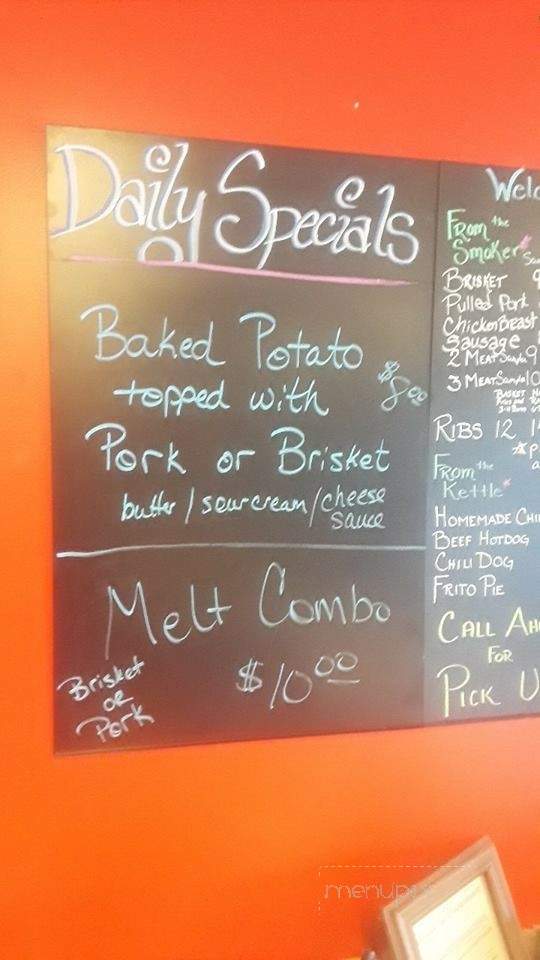 Daily Specials
Baked Potato
topped with
$8.00
Pork or Brisket
butter / sour cream / cheese
sauce
Melt Combo
$10.00
Brisket
or
Pork
Welc
From the
Smoker
BRISKET 9
Pulled Pork
Chicken Breast
Sausage
2 MEAT 9
3 MEAT 10
RIBS 12
From the
Kettle
HOMEMADE CHI
BEEF HOTDOG
CHILI DOG
FRITO PIE
CALL AH
FOR
PICK U
menup